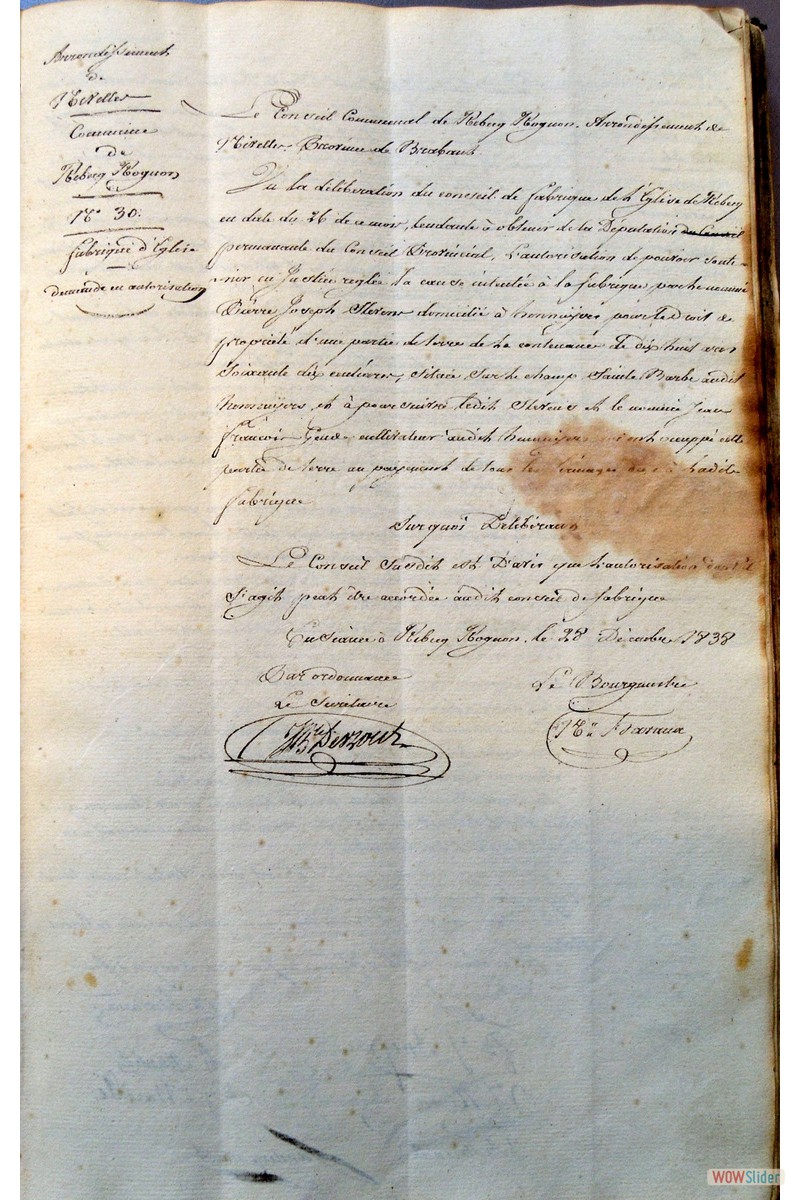 Arrondissement
de
Nivelles
Commune
de
Rebecq Rognon
N° 30.
fabrique d'Eglise
demande en autorisation
Le Conseil Communal de Rebecq Rognon, Arrondissement de
Nivelles, Province de Brabant
Vu la déliberation du conseil de fabrique de l'Eglise de Rebecq
en date du 26 de ce mois, tendante à obtenir de la Députation du Conseil
permanante du Conseil Provincial, l'autorisation de pouvoir soute-
nir en Justice reglée la cause intentée à la fabrique par le nommé
Pierre Joseph Stevens domicilié à hennuijers pour le Droit de
propriété d'une partie de terre de la contenance de dix huit ares
Soixante dix centiares, située sur le champ Sainte Barbe audit
hennuijers, et à poursuivre ledit Stevens et le nommé Jean
François cultivateur audit hennuijers, qui ont occuppé cette
partie de terre au payement de tous les fermages à ladite
fabrique
Sur quoi Délibérant
Le Conseil Susdit est D'avis que l'autorisation dont il
S'agit peut être accordée audit conseil de fabrique
En Séance à Rebecq Rognon, le 28 Décembre 1838
Par ordonnance
Le Bourgmestre
Le Secrétaire
WOWSlider